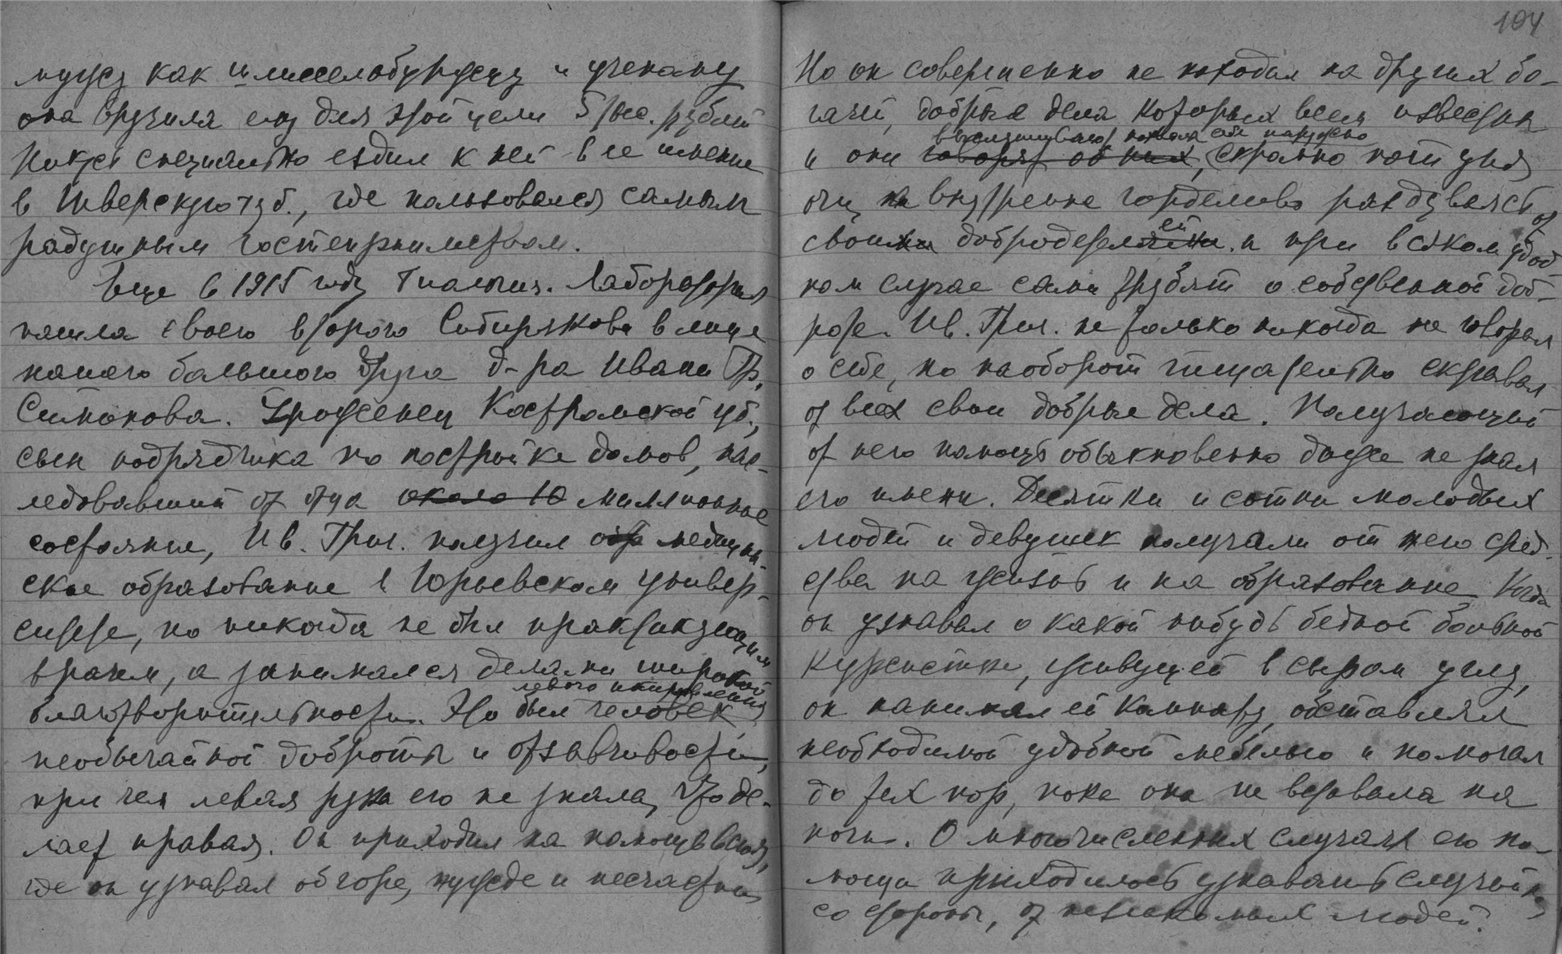 мужу как шлиссельбуржцу и ученому
она вручила ему для этой цели 5 тыс. рублей
специально ездил к ней в ее имение
в Тверскую губ., где пользовался самым
радушным гостеприимством.
Еще в 1915 году Биологич. Лаборатория
нашла своего второго Сибирякова в лице
нашего большого друга д-ра Ивана Гр.
Симонова. Уроженец Костромской губ.,
сын подрядчика по постройке домов, нас-
ледовавший от отца около 10 миллионное
состояние, Ив. Григ. получил медицин-
ское образование в Юрьевском универ-
ситете, но никогда не был практикующим
врачем, а занимался делами широкой
левого направления
благотворительности. Это был человек
необычайной доброты и отзывчивости,
при чем левая рука его не знала, что де-
лает правая. Он приходил на помощь всюду,
где он узнавал об горе, нужде и несчастьи
104
Но он совершенно не походил на других бо-
гачей, добрые дела которых всем известны
наружно
и они говорят об них, скромно потупляя
очи, но внутренне горделиво раздуваясь от
ей
своими добродетелями и при всяком удоб-
ном случае сами трубят о собственной доб-
роте. Ив. Григ. не только никогда не говорил
о себе, но наоборот тщательно скрывал
от всех свои добрые дела. Получающий
от него помощь обыкновенно даже не знал
его имени. Десятки и сотни молодых
людей и девушек получали от него сред-
ства на жизнь и на образование. Когда
он узнавал о какой нибудь бедной больной
курсистке, живущей в сыром углу,
он нанимал ей комнату, обставлял
необходимой удобной мебелью и помогал
до тех пор, пока она не вставала на
ноги. О многочисленных случаях его по-
мощи приходилось узнавать случайно
со стороны, от незнакомых людей.